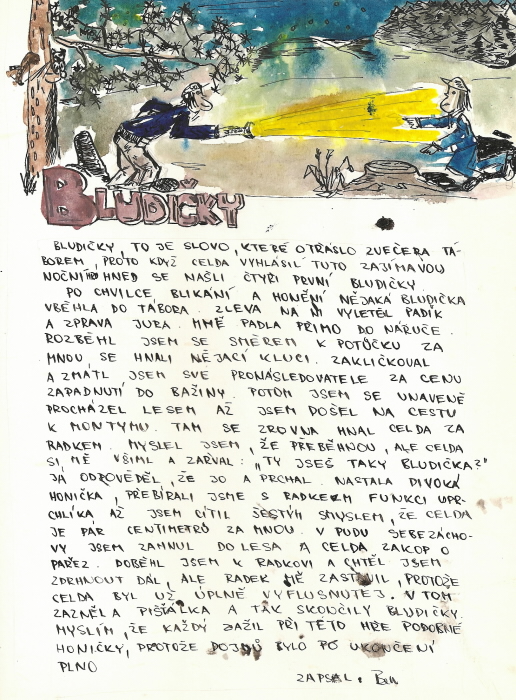 BLUDIČKY
BLUDIČKY, TO JE SLOVO, KTERÉ OTŘÁSLO ZVEČERA TÁ-
BOREM, PROTO KDYŽ CELDA VYHLÁSIL TUTO ZAJÍMAVOU
NOČNÍ HNED SE NAŠLI ČTYŘI PRVNÍ BLUDIČKY.
PO CHVILCE BLIKÁNÍ A HONĚNÍ NĚJAKÁ BLUDIČKA
VBĚHLA DO TÁBORA. ZLEVA NA NI VYLETĚL PADÍK
A ZPRAVA JURA. MMĚ PADLA PŘÍMO DO NÁRUČE.
ROZBĚHL JSEM SE SMĚREM K POTŮČKU ZA
MNOU SE HNALI NĚJACÍ KLUCI. ZAKLIČKOVAL
A ZMÁTL JSEM SVÉ PRONÁSLEDOVATELE ZA CENU
ZAPADNUTÍ DO BAŽINY. POTOM JSEM SE UNAVENĚ
PROCHÁZEL LESEM AŽ JSEM DOŠEL NA CESTU
K MONTYMU. TAM SE ZROVNA HNAL CELDA ZA
RADKEM. MYSLEL JSEM, ŽE PŘEBĚHNOU, ALE CELDA
SI MĚ VŠIML A ZAŘVAL: „TY JSEŠ TAKY BLUDIČKA?"
JÁ ODPOVĚDĚL, ŽE JO A PRCHAL. NASTALA DIVOKÁ
HONIČKA, PŘEBÍRALI JSME S RADKEM FUNKCI UPR-
CHLÍKA AŽ JSEM CÍTIL ŠESTÝM SMYSLEM, ŽE CELDA
JE PÁR CENTIMETRŮ ZA MNOU. V PUDU SEBEZÁCHO-
VY JSEM ZAHNUL DO LESA A CELDA ZAKOP O
PAŘEZ. DOBĚHL JSEM K RADKOVI A CHTĚL JSEM
ZDRHNOUT DÁL, ALE RADEK MĚ ZASTAVIL, PROTOŽE
CELDA BYL UŽ ÚPLNĚ VYFLUSNUTEJ. V TOM
ZAZNĚLA PÍŠŤALKA A TAK SKONČILY BLUDIČKY.
MYSLÍM, ŽE KAŽDÝ ZAŽIL PŘI TÉTO HŘE PODOBNÉ
HONIČKY, PROTOŽE DOJMŮ BYLO PO UKONČENÍ
PLNO
ZAPSAL: